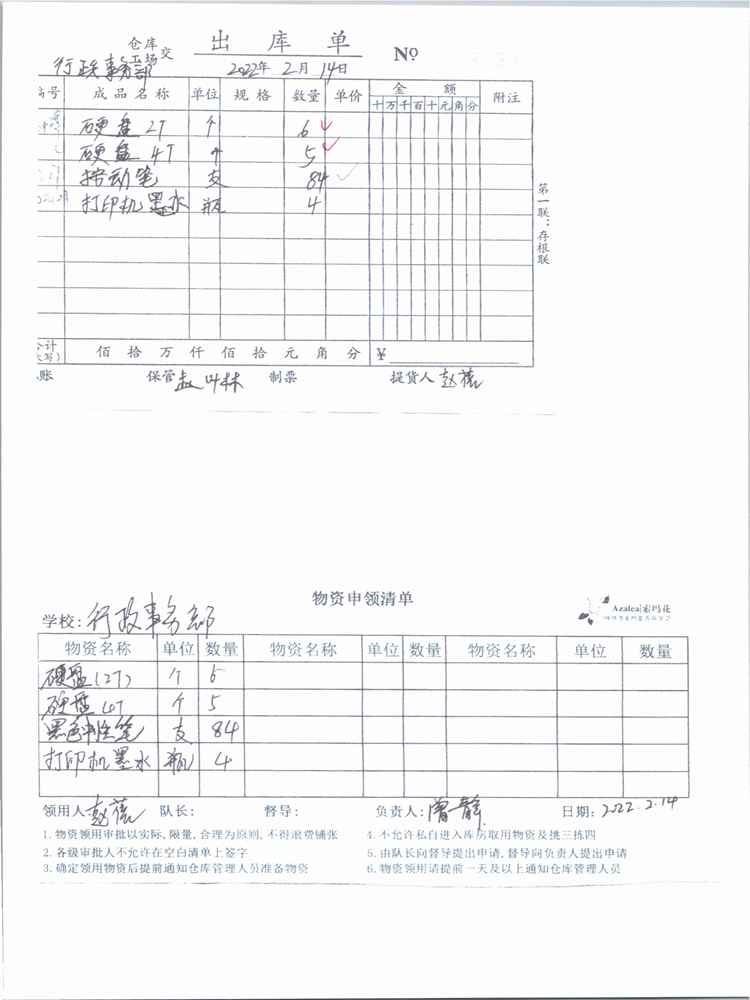 仓库
工场 交 出库单 №
行政事务部 2022年2月14日
编号 成品名称 单位 规格 数量 单价 金额 附注
十 万 千 百 十 元 角 分
硬盘 2T 个 6
硬盘 4T 个 5
按动笔 支 84
打印机墨水 瓶 4
第一联：存根联
合计 佰 拾 万 仟 佰 拾 元 角 分 ¥
账 保管 制票 提货人 赵蓓
物资申领清单
Azalea|索玛花
学校: 行政事务部
物资名称 单位 数量 物资名称 单位 数量 物资名称 单位 数量
硬盘(2T) 个 6
硬盘 4T 个 5
黑色中性笔 支 84
打印机墨水 瓶 4
领用人 赵蓓 队长: 督导: 负责人: 曾静 日期: 2022.2.14
1. 物资领用审批以实际, 限量, 合理为原则, 不得浪费铺张 4. 不允许私自进入库房取用物资及挑三拣四
2. 各级审批人不允许在空白清单上签字 5. 由队长向督导提出申请, 督导向负责人提出申请
3. 确定领用物资后提前通知仓库管理人员准备物资 6. 物资领用请提前一天及以上通知仓库管理人员